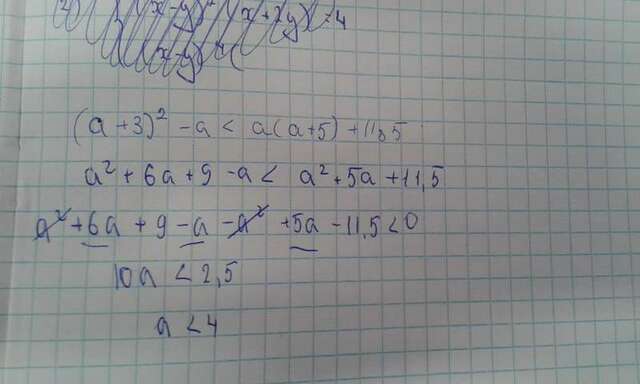 (a+3)² - a < a(a+5) + 11,5
a² + 6a + 9 - a < a² + 5a + 11,5
a² + 6a + 9 - a - a² + 5a - 11,5 < 0
10a < 2,5
a < 4